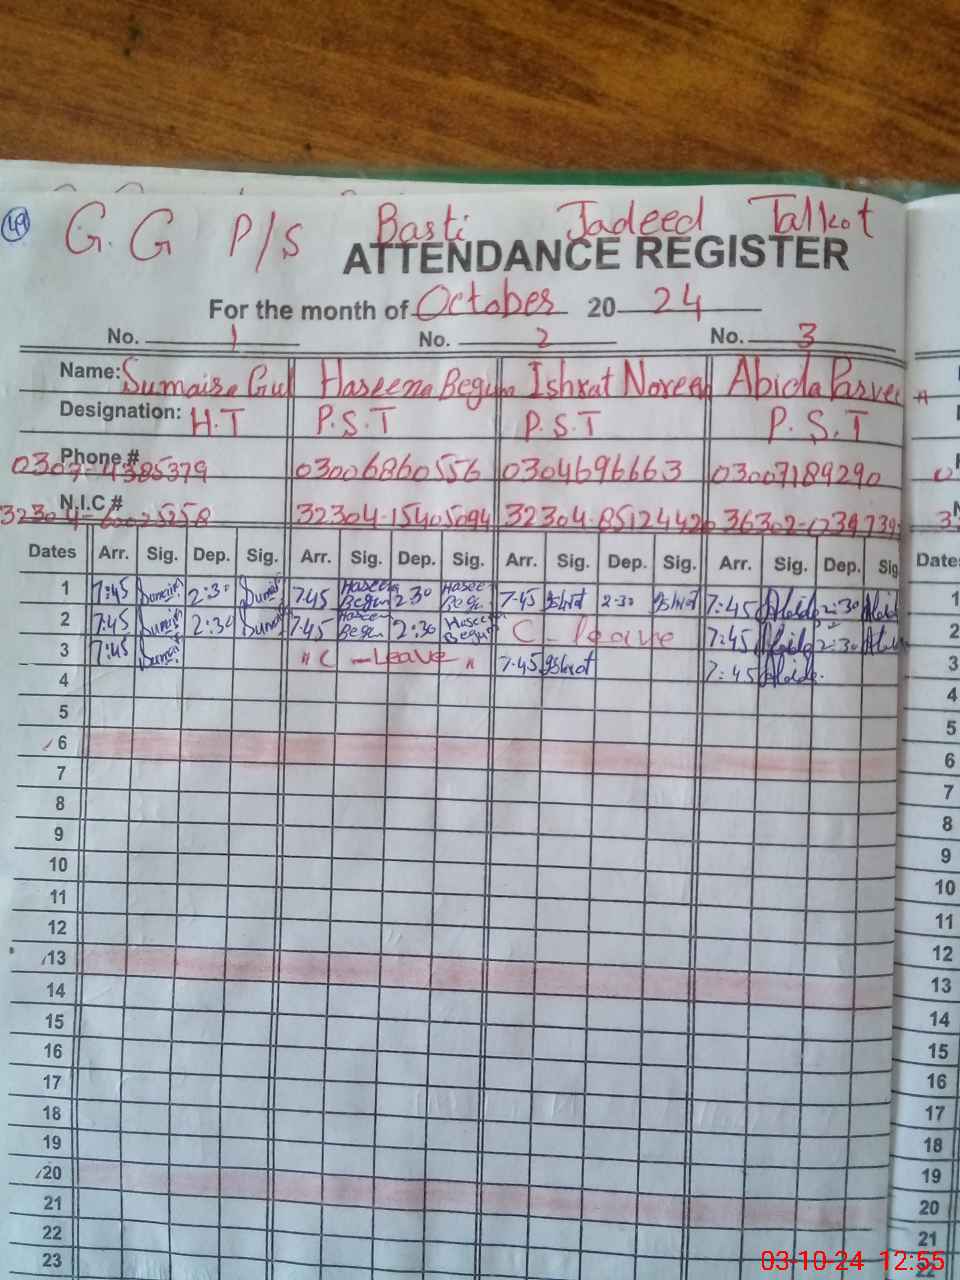 49 G.G P/S Basti Jadeed Talkot
ATTENDANCE REGISTER
For the month of October 2024
No. 1 No. 2 No. 3
Name: Sumaira Gul Haseena Begum Ishrat Noreen Abida Parveen
Designation: H.T P.S.T P.S.T P.S.T
Phone # 0307-4385379 03006860556 0304696663 03007189290
N.I.C# 32304-15405094 32304-85124420
Dates Arr. Sig. Dep. Sig. Arr. Sig. Dep. Sig. Arr. Sig. Dep. Sig. Arr. Sig. Dep. Sig Dates
1 7:45 Sumaira 2:30 Sumaira 7:45 Haseena Begum 2:30 Haseena Begum 7:45 Ishrat 2:30 Ishrat 7:45 Abida 2:30 Abida 1
2 7:45 Sumaira 2:30 Sumaira 7:45 Haseena Begum 2:30 Haseena Begum C - leave 7:45 Abida 2:30 Abida 2
3 7:45 Sumaira "C - Leave" 7:45 Ishrat 7:45 Abida 3
4 4
5 5
6 6
7 7
8 8
9 9
10 10
11 11
12 12
13 13
14 14
15 15
16 16
17 17
18 18
19 19
20 20
21 21
22 22
23
03-10-24 12:55